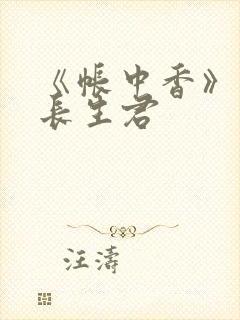 《帐中香》
长生君
汪涛